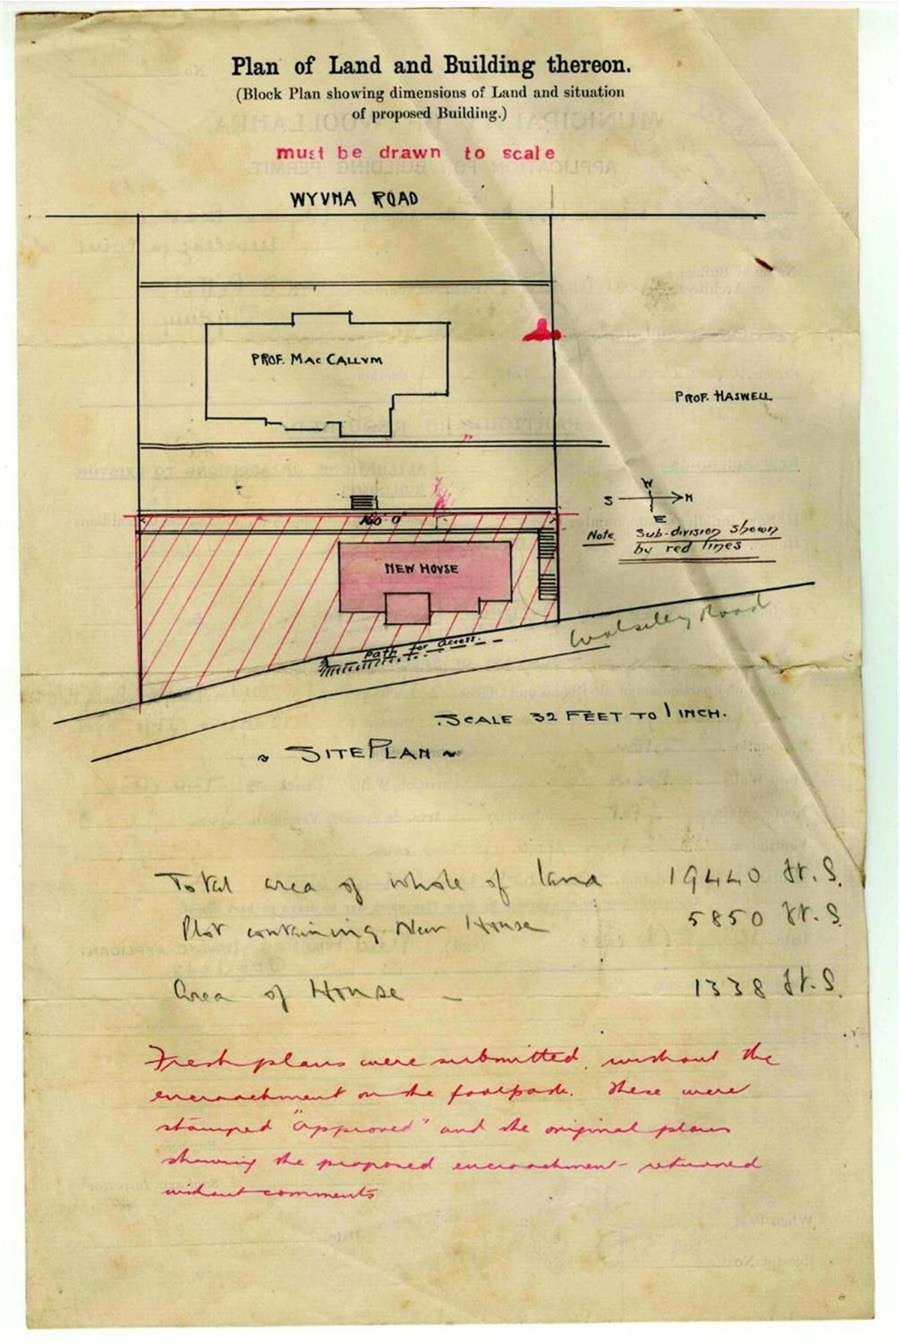 Plan of Land and Building thereon.
(Block Plan showing dimensions of Land and situation
of proposed Building.)
must be drawn to scale
WYVNA ROAD
PROF. MAC CALLVM
PROF. HASWELL
W
S N
E
160' 0"
Note Sub-division shown
by red lines
NEW HOVSE
Path for access.
Wolseley Road
SCALE 32 FEET TO 1 INCH.
~ SITE PLAN ~
Total area of whole of land 19440 ft. S.
Plot containing New House 5850 ft. S.
Area of House — 1338 ft. S.
Fresh plans were submitted, without the
encroachment on the footpath. These were
stamped "approved" and the original plans
showing the proposed encroachment returned
without comments